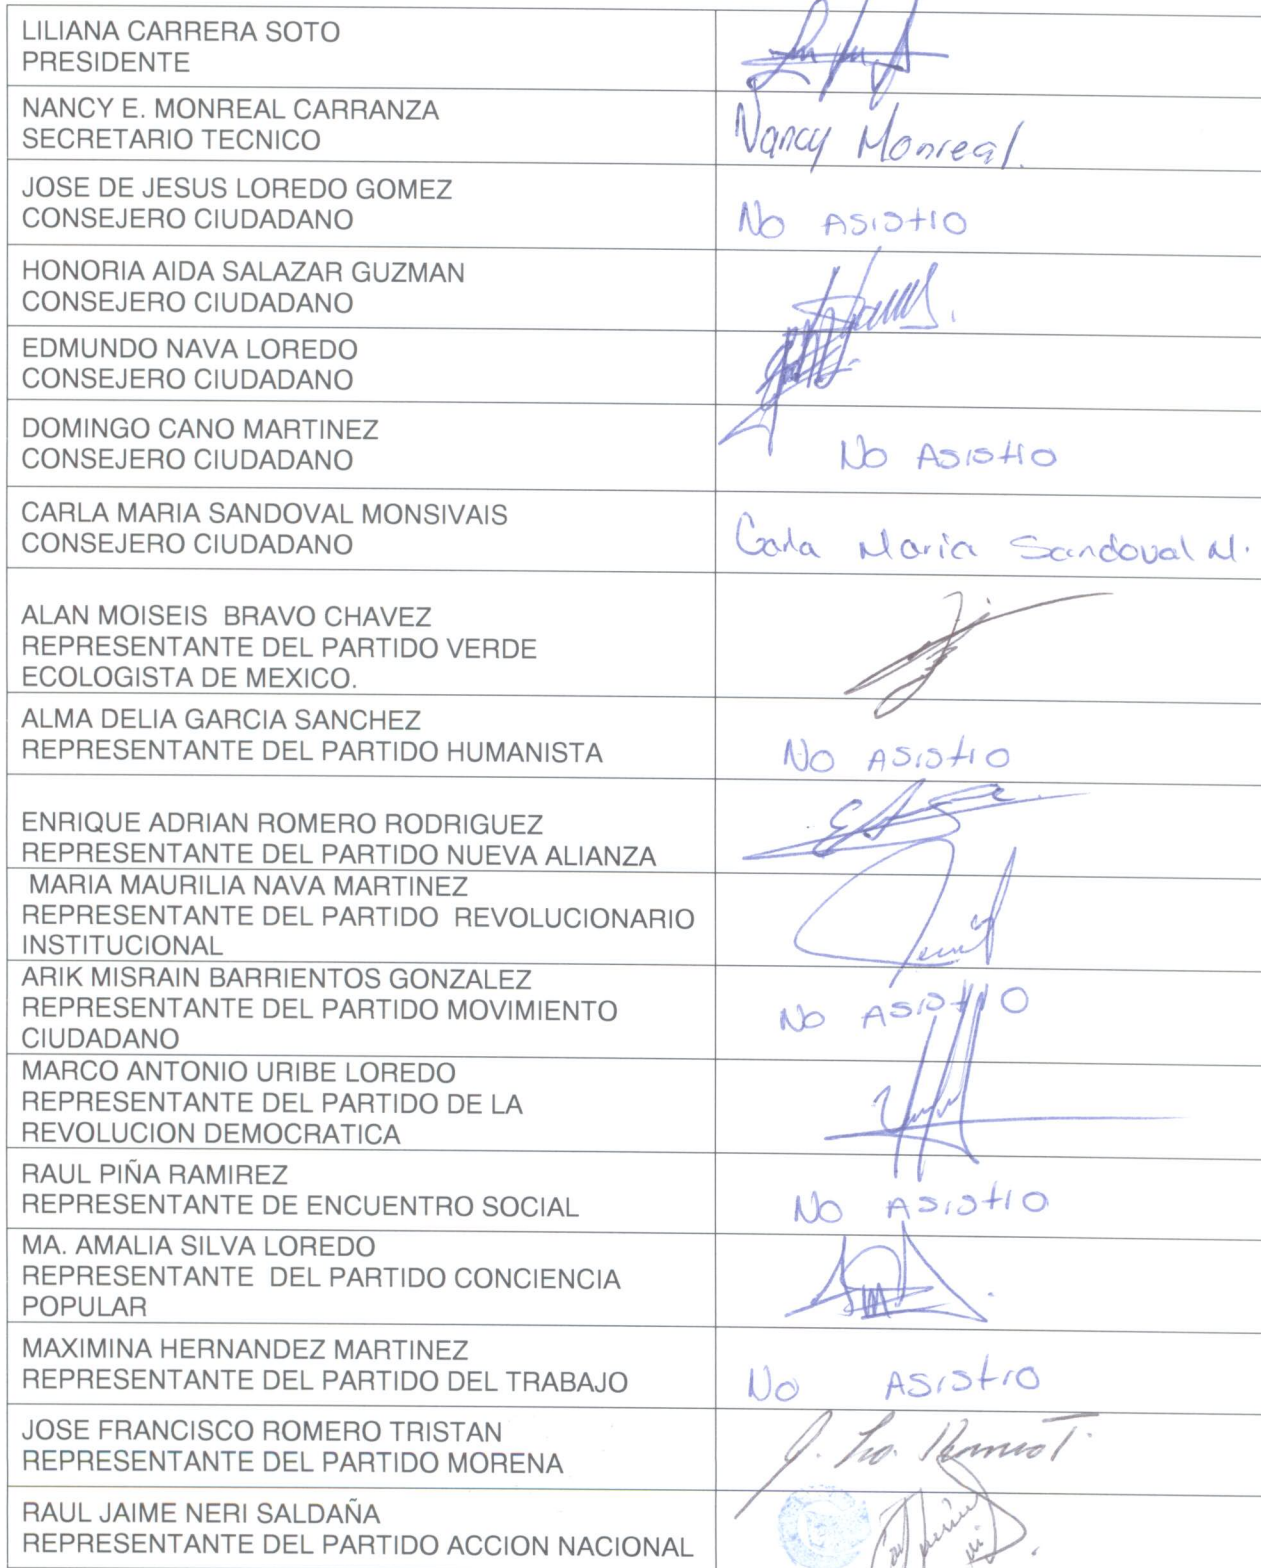 LILIANA CARRERA SOTO
PRESIDENTE
NANCY E. MONREAL CARRANZA
SECRETARIO TECNICO
Nancy Monreal.
JOSE DE JESUS LOREDO GOMEZ
CONSEJERO CIUDADANO
No Asistio
HONORIA AIDA SALAZAR GUZMAN
CONSEJERO CIUDADANO
EDMUNDO NAVA LOREDO
CONSEJERO CIUDADANO
DOMINGO CANO MARTINEZ
CONSEJERO CIUDADANO
No Asistio
CARLA MARIA SANDOVAL MONSIVAIS
CONSEJERO CIUDADANO
Carla Maria Sandoval M.
ALAN MOISEIS BRAVO CHAVEZ
REPRESENTANTE DEL PARTIDO VERDE
ECOLOGISTA DE MEXICO.
ALMA DELIA GARCIA SANCHEZ
REPRESENTANTE DEL PARTIDO HUMANISTA
No Asistio
ENRIQUE ADRIAN ROMERO RODRIGUEZ
REPRESENTANTE DEL PARTIDO NUEVA ALIANZA
MARIA MAURILIA NAVA MARTINEZ
REPRESENTANTE DEL PARTIDO REVOLUCIONARIO
INSTITUCIONAL
ARIK MISRAIN BARRIENTOS GONZALEZ
REPRESENTANTE DEL PARTIDO MOVIMIENTO
CIUDADANO
No Asistio
MARCO ANTONIO URIBE LOREDO
REPRESENTANTE DEL PARTIDO DE LA
REVOLUCION DEMOCRATICA
RAUL PIÑA RAMIREZ
REPRESENTANTE DE ENCUENTRO SOCIAL
No Asistio
MA. AMALIA SILVA LOREDO
REPRESENTANTE DEL PARTIDO CONCIENCIA
POPULAR
MAXIMINA HERNANDEZ MARTINEZ
REPRESENTANTE DEL PARTIDO DEL TRABAJO
No Asistio
JOSE FRANCISCO ROMERO TRISTAN
REPRESENTANTE DEL PARTIDO MORENA
J. Fco. Romero T.
RAUL JAIME NERI SALDAÑA
REPRESENTANTE DEL PARTIDO ACCION NACIONAL